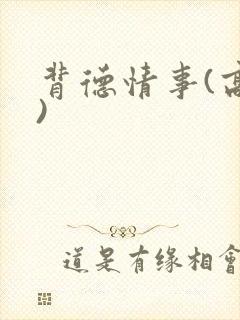 背德情事(高
)
道是有缘相會